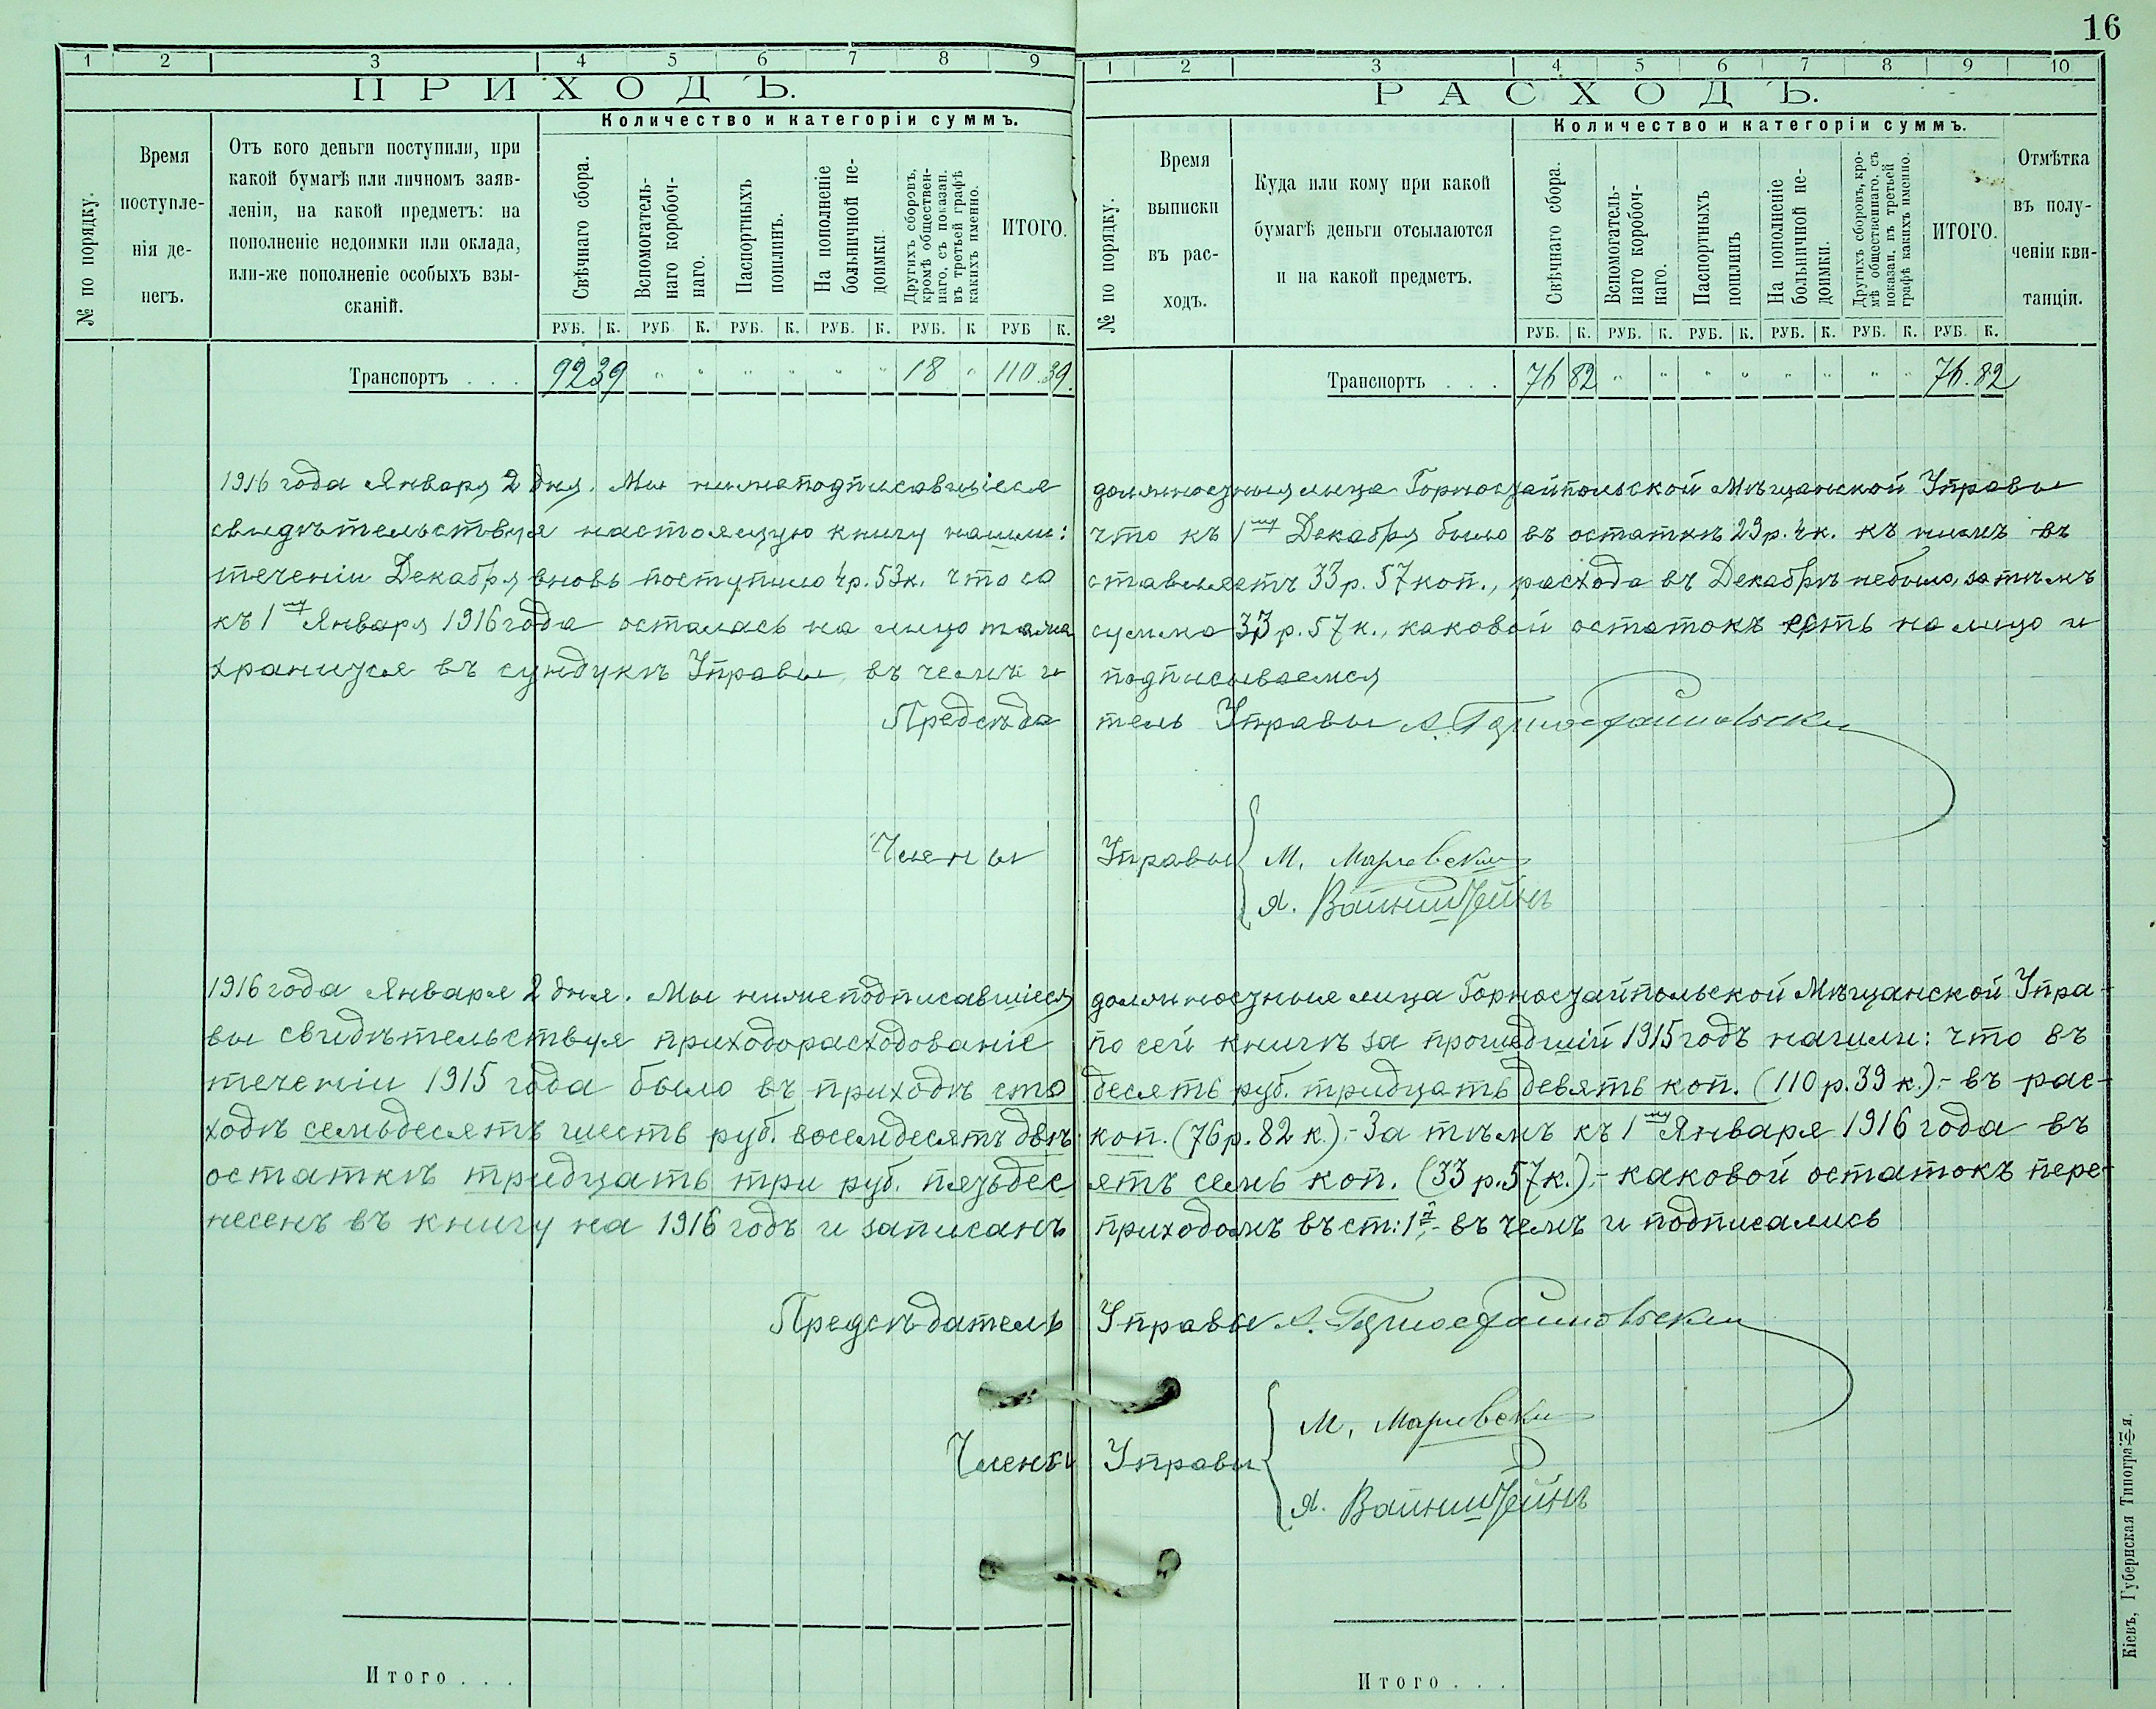 16
1 2 3 4 5 6 7 8 9
ПРИХОДЪ.
Количество и категоріи суммъ.
№ по порядку.
Время
поступле-
нія де-
негъ.
Отъ кого деньги поступили, при
какой бумагѣ или личномъ заяв-
леніи, на какой предметъ: на
пополненіе недоимки или оклада,
или-же пополненіе особыхъ взы-
сканій.
Свѣчнаго сбора.
Вспомогатель-
наго коробоч-
наго.
Паспортныхъ
пошлинъ.
На пополненіе
больничной не-
доимки.
Другихъ сборовъ,
кромѣ обществен-
наго, съ показан.
въ третьей графѣ
какихъ именно.
ИТОГО.
РУБ. К. РУБ. К. РУБ. К. РУБ. К. РУБ. К РУБ К.
Транспортъ . . . 92 39 " " " " " " 18 " 110.39.
1 2 3 4 5 6 7 8 9 10
РАСХОДЪ.
Количество и категоріи суммъ.
№ по порядку.
Время
выписки
въ рас-
ходъ.
Куда или кому при какой
бумагѣ деньги отсылаются
и на какой предметъ.
Свѣчнаго сбора.
Вспомогатель-
наго коробоч-
наго.
Паспортныхъ
пошлинъ
На пополненіе
больничной не-
доимки.
Другихъ сборовъ, кро-
мѣ общественнаго, съ
показан. въ третьей
графѣ какихъ именно.
ИТОГО.
Отмѣтка
въ полу-
ченіи кви-
танціи.
РУБ. К. РУБ. К. РУБ. К. РУБ. К. РУБ. К. РУБ. К.
Транспортъ . . . 76 82 " " " " " " " " 76.82
1916 года Января 2 дня. Мы нижеподписавшіеся должностныя лица Горностайпольской Мѣщанской Управы
свидѣтельствуя настоящую книгу нашли: что къ 1му Декабря было въ остаткѣ 29 р. 4 к. къ нимъ въ
теченіи Декабря вновь поступило 4 р. 53 к. что со ставляетъ 33 р. 57 коп., расхода въ Декабрѣ небыло, затѣмъ
къ 1му Января 1916 года осталась на лицо сумма 33 р. 57 к., каковой остатокъ есть на лицо и
хранится въ сундукѣ Управы, въ чемъ и подписываемся
Предсѣда тель Управы А. Горностайпольскій
Члены Управы М. Маріевскій
Я. Вайнштейнъ
1916 года Января 2 дня. Мы нижеподписавшіеся должностные лица Горностайпольской Мѣщанской Упра-
вы свидѣтельствуя приходорасходованіе по сей книгѣ за прошедшій 1915 годъ нашли: что въ
теченіи 1915 года было въ приходѣ сто десять руб. тридцать девять коп. (110 р. 39 к.) - въ рас-
ходѣ семьдесятъ шесть руб. восемдесятъ двѣ коп. (76 р. 82 к.) - За тѣмъ къ 1му Января 1916 года въ
остаткѣ тридцать три руб. пятьдес ятъ семь коп. (33 р. 57 к.), - каковой остатокъ пере-
несенъ въ книгу на 1916 годъ и записанъ приходомъ въ ст: 1й, - въ чемъ и подписались
Предсѣдатель Управы А. Горностайпольскій
Члены Управы М. Маріевскій
Я. Вайнштейнъ
Итого . . .
Итого . . .
Кіевъ, Губернская Типографія.